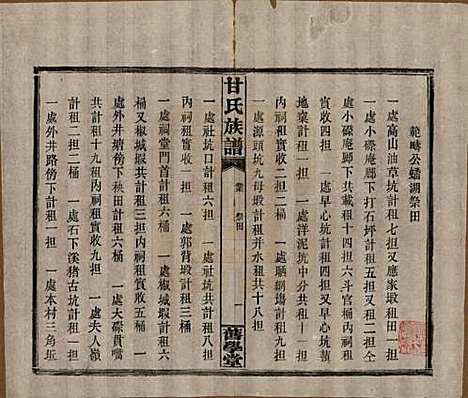 範疇公蟠湖祭田
一處高山油草坑計租七担又應家塅租田一
担一處小磜庵厰下打石坪計租五担又二担仝
處小磜庵厰下共載租十四担六斗宮桶丙祠租
實收四担一處湖子坑計租四担一早禾坑
地棄計租一担一處洋泥坑中分共計租三担丙祠
租實收二担一處晒網塲計租二担
一處源頭坑九母塅計租并水租共十八担
甘氏族譜
祭田
一
舊學堂
一處社坑口計租六担一處社坑共計租八担
丙祠租實收一担一處郭背塅計租三担
一處祠堂門首計租六桶一處椒城塅計租六
桶又椒城塅共計租三担丙祠租實收五桶一
處外井塘傍下秧田計租二桶一處大磜貫嘴
共計租十九担丙祠租實收九担一處夫人嶺
計租二担二桶一處石下溪豬古坑計租一担
一處外井路傍下計租一担一處本村三角坵